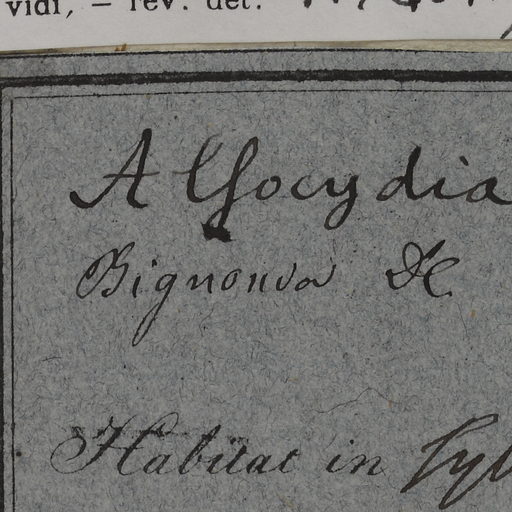 vidi, — rev. det.
Alsocydia
Bignonia
Habitat in